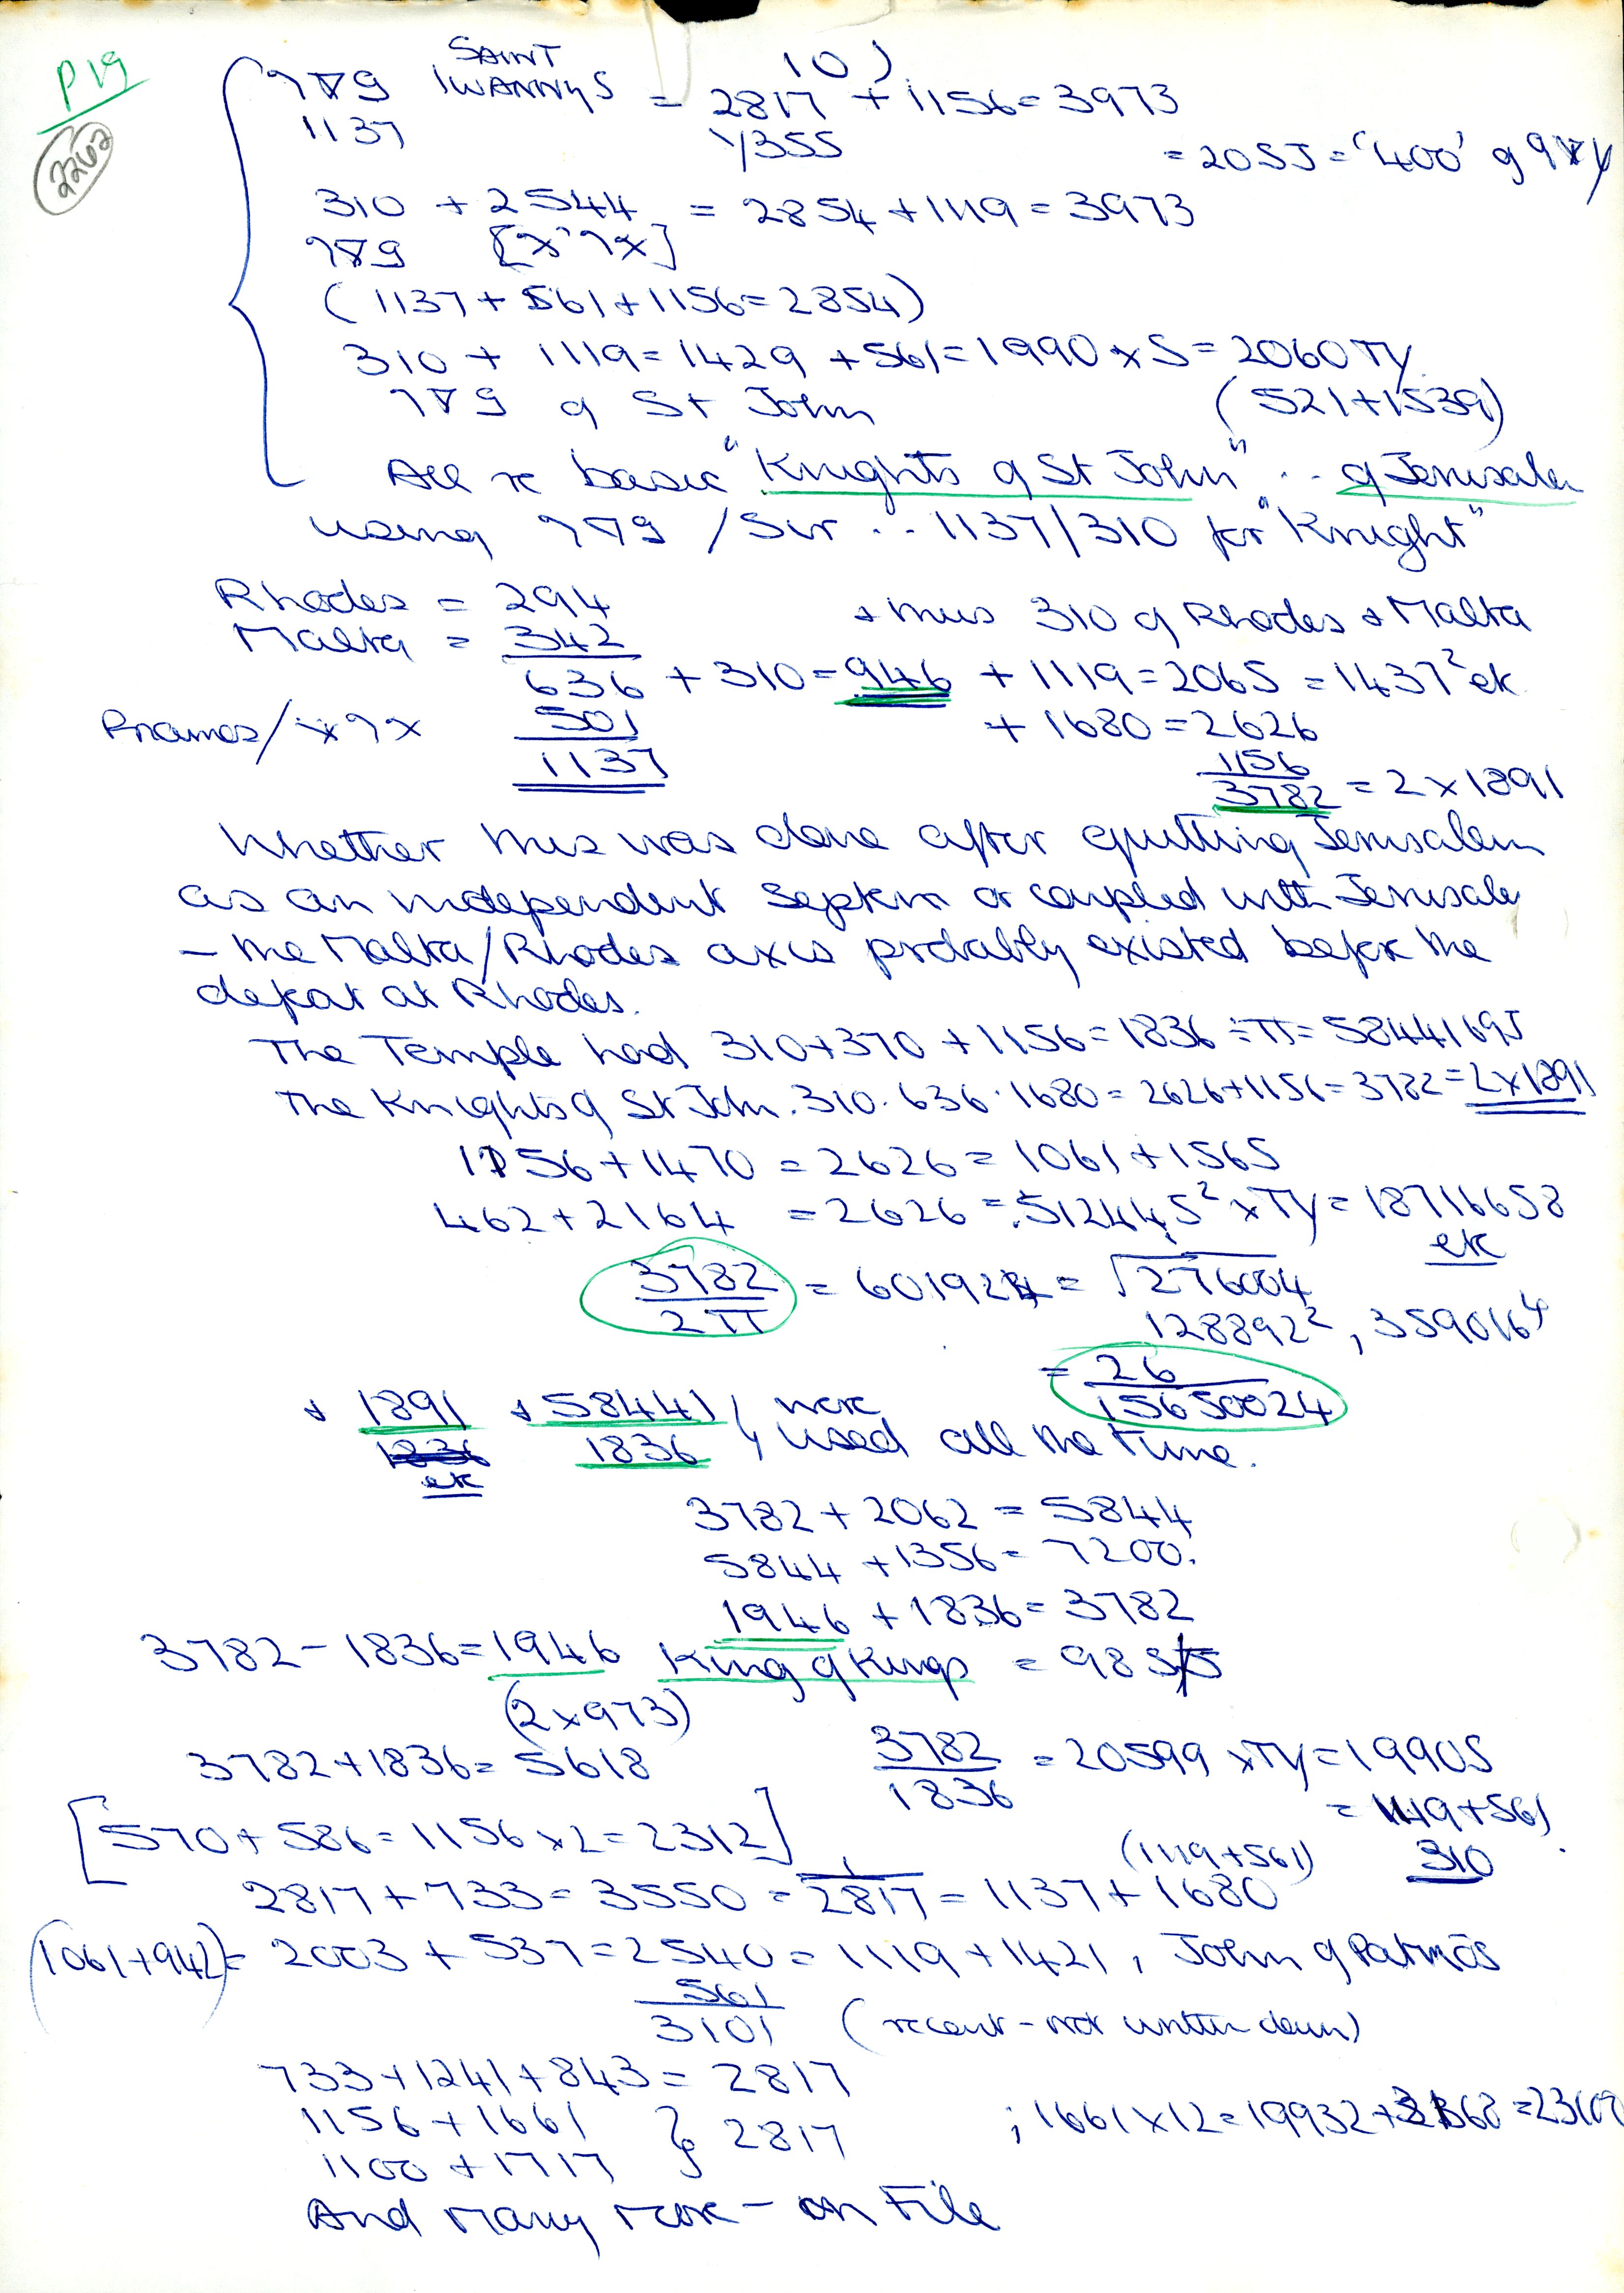 P19
2262
10)
SAINT
IWANNYS = 2817 + 1156 = 3973
1137 √355 = 205J = '400'
310 + 2544 = 2854 + 1119 = 3973
(1137 + 561 + 1156 = 2854)
310 + 1119 = 1429 + 561 = 1990 × S = 2060 Ty
of St John (521 + 1539)
All re basic "Knights of St John" .. of Jerusalem
using / Sir .. 1137/310 for "Knight"
Rhodes = 294 + thus 310 of Rhodes + Malta
Malta = 342
636 + 310 = 946 + 1119 = 2065 = 1437² ek
501 + 1680 = 2626
1137 1156
3782 = 2 × 1891
Whether this was done after quitting Jerusalem
as an independent or coupled with Jerusalem
– the Malta/Rhodes axis probably existed before the
defeat at Rhodes.
The Temple had 310 + 370 + 1156 = 1836 ÷ π = 5844169J
The Knights of St John. 310. 636. 1680 = 2626 + 1156 = 3782 = 2 × 1891
1156 + 1470 = 2626 = 1061 + 1565
462 + 2164 = 2626 = 51244S² × Ty = 18716658
ek
3782 / 2π = 601924 = √276004
128892², 359016⁴
= 26 / 15650024
+ 1891 + 58441 } were
ek 1836 } used all the time.
3782 + 2062 = 5844
5844 + 1356 = 7200.
1946 + 1836 = 3782
3782 – 1836 = 1946 King of Kings = 98
(2 × 973)
3782 + 1836 = 5618 3782 / 1836 = 20599 × Ty = 1990S
= 1119 + 561
[570 + 586 = 1156 × 2 = 2312] (1119 + 561) 310
2817 + 733 = 3550 = 1 / 2817 = 1137 + 1680
(1061 + 942) = 2003 + 537 = 2540 = 1119 + 1421, John of Patmos
561
3101 (recent – not written down)
733 + 1241 + 843 = 2817
1156 + 1661 } 2817 ; 1661 × 12 = 19932
1100 + 1717
And Many More – on File